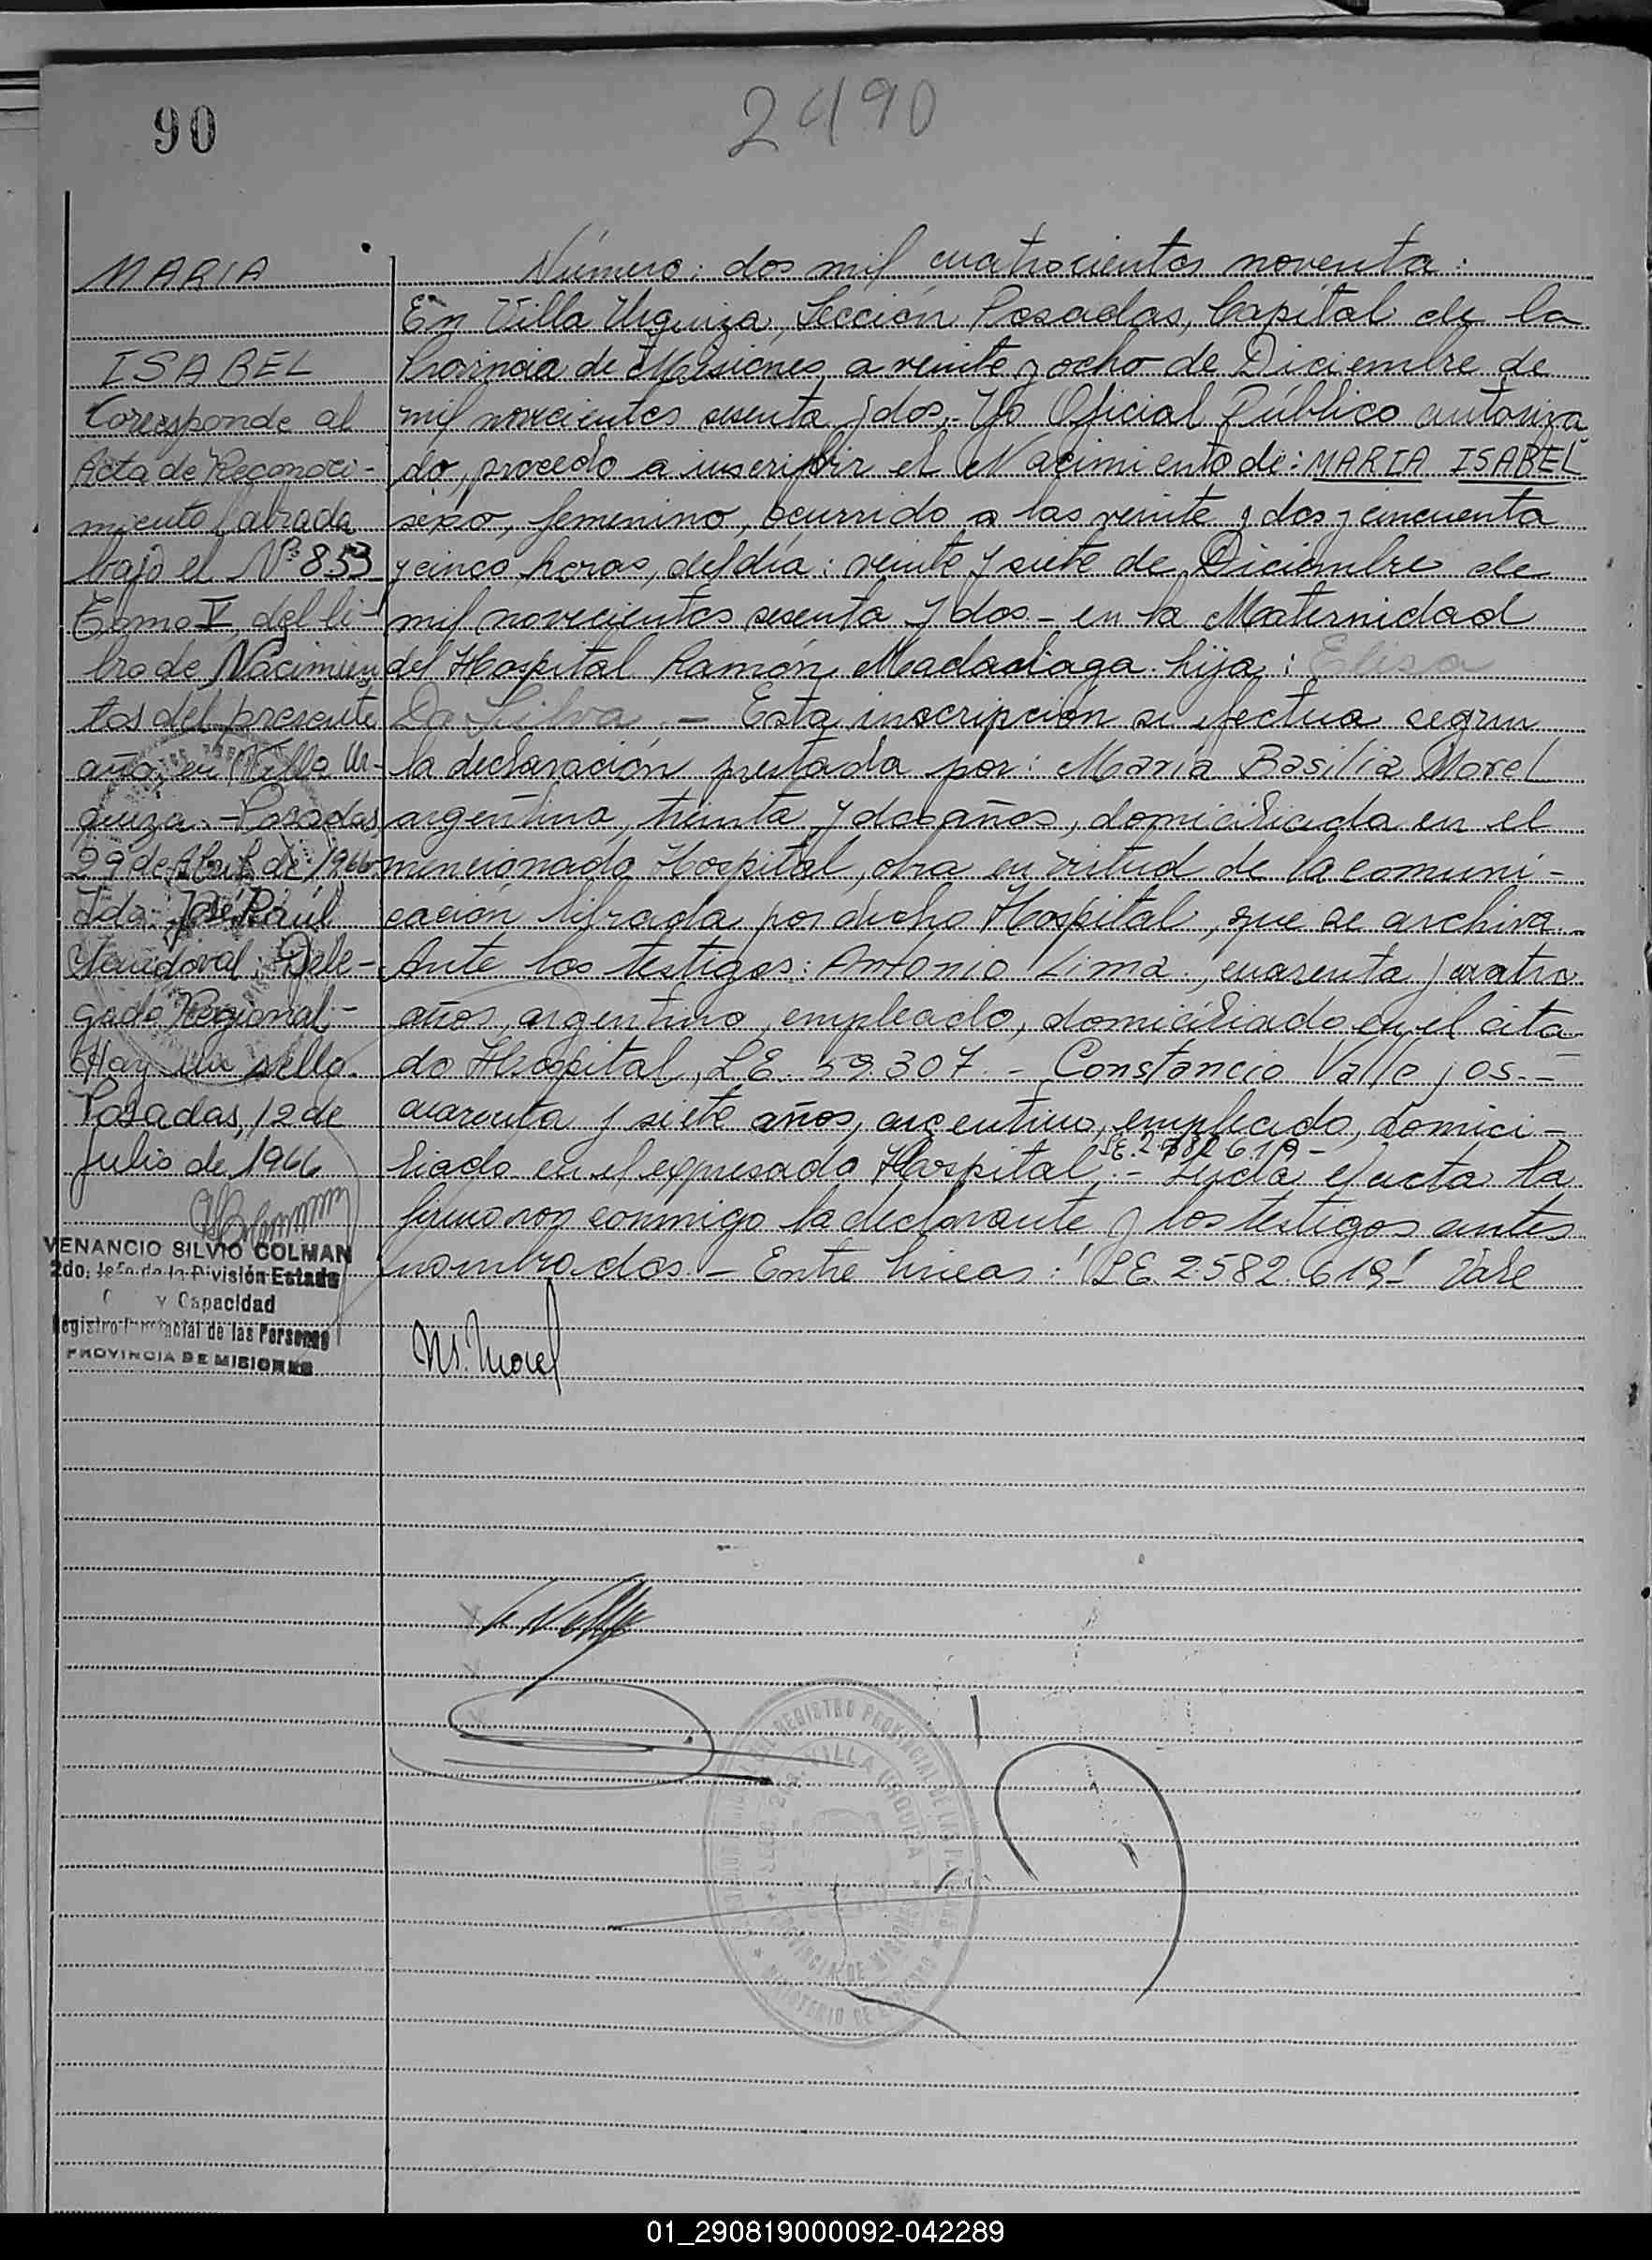 90
2490
MARIA
ISABEL
Corresponde al
Acta de Reconoci-
miento labrada
bajo el Nº 853
Tomo V, del li-
bro de Nacimien
tos del presente
año, en Villa Ur-
quiza. - Posadas
29 de Abril de 1966
Fdo: José Raúl
Sandoval. Dele-
gado Regional. -
Hay un sello.
Posadas, 12 de
Julio de 1966
VENANCIO SILVIO COLMAN
2do. Jefe de la División Estado
y Capacidad
Registro Provincial de las Personas
PROVINCIA DE MISIONES
Número: dos mil cuatrocientos noventa:
En Villa Urquiza, Sección Posadas, Capital de la
Provincia de Misiones, a veinte y ocho de Diciembre de
mil novecientos sesenta y dos. - Yo Oficial Público autoriza
do, procedo a inscribir el Nacimiento de: MARIA ISABEL
sexo, femenino, ocurrido a las veinte y dos y cincuenta
y cinco horas, del día: veinte y siete de Diciembre de
mil novecientos sesenta y dos - en la Maternidad
del Hospital Ramón Madariaga. hija: Elisa
Da Silva. - Esta inscripción se efectua segun
la declaración prestada por: María Basilia Morel
argentina, treinta y dos años, domiciliada en el
mencionado Hospital, obra en virtud de la comuni-
cación librada por dicho Hospital, que se archiva. -
Ante los testigos: Antonio Lima, cuarenta y cuatro
años, argentino, empleado, domiciliado en el cita
do Hospital, LE. 59.307. - Constancio Vallejos. -
cuarenta y siete años, argentino, empleado, domici-
LE. 2.582.619 -
liado en el expresado Hospital. - Leída el acta la
firmaron conmigo la declarante y los testigos antes
nombrados. - Entre lineas: "LE. 2582.619" Vale
M. Morel
REGISTRO PROVINCIAL DE LAS PERSONAS
SECC. 2da. VILLA URQUIZA
PROVINCIA DE MISIONES
MINISTERIO DE GOBIERNO
01_290819000092-042289